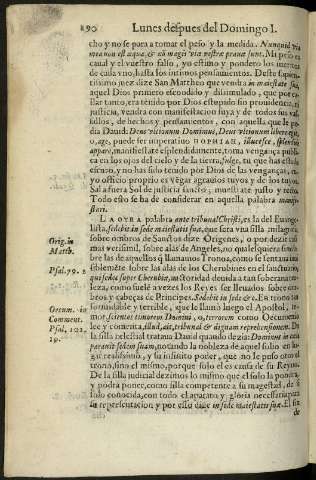 190 Lunes despues del Domingo I.
cho y no se para a tomar el peso y la medida. Nunquid via
mea non est æqua, & nõ magis viæ vestræ prauæ sunt. Mi peso es
caual y el vuestro falso, yo estimo y pondero los meritos
de cada vno, hasta los intimos pensamientos. Deste sapien-
tissimo juez dize San Mattheo que vendra in maiestate sua,
aquel Dios primero escondido y dissimulado, que por ca-
llar tanto, era tenido por Dios estupido sin prouidencia, ni
justicia, vendra con manifestacion suya y de todos sus val-
didos, de hechos y pensamientos, con aquella que le pe-
dia Dauid: Deus vltionum Dominus, Deus vltionum libere egit,
o, age, puede ser imperatiuo HOPHIAH, illucesce, splendide
appare, manifiestate esplendidamente, toma vengança publi-
ca en los ojos del cielo y de la tierra, fulge, tu que has estado
escuro, y no has sido tenido por Dios de las venganças, cu-
yo officio proprio es vegar agrauios tuyos y de los tuyos.
Sal a fuera Sol de justicia sancto, muestrate justo y recto.
Todo esto se ha de considerar en aquella palabra mani-
festari.
LA otra palabra ante tribunal Christi, es la del Euange-
lista, sedebit in sede maiestatis suæ, que sera vna silla milagrosa
Orig. in
Matth.
sobre ombros de Sanctos dize Origenes, o por dezir co-
mas verisimil, sobre alas de Angeles, no qualesquiera sino so-
bre las de aquellos q̃ llamamos Tronos, como se sentaua in-
Psal. 79. 2
uisiblemẽte sobre las alas de los Cherubines en el sanctuario,
qui sedes super Cherubim, autoridad deuida a tan soberana al-
teza, como suelẽ a vezes los Reyes ser lleuados sobre om-
bros y cabeças de Principes. Sedebit in sede &c. En trono tan
formidable y terrible, que le llamò luego el Apostol, ti-
Oecum. in
Comment.
mor. scientes timorem Domini, o, terrorem como Oecumenio
lee y comenta, illud, ait, tribunal & dignam reprehensionem. De
Psal. 102.
19.
la silla celestial trataua Dauid quando dezia: Dominus in cœlo
parauit sedem suam, notando la nobleza de aquel solio en lu-
gar realissimo, y su infinito poder, que no le puso otro el
trono, sino el mismo, porque solo el es causa de su Reyno.
De la silla judicial dezimos lo mismo que el solo la pondra,
y podra poner, como silla competente a su magestad, de si
solo conocida, con todo el aparato y gloria necessaria para
su representacion y por esso dize in sede maiestatis suæ. El fin
de